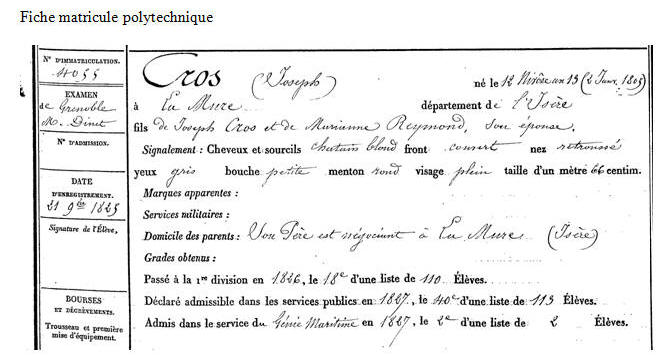 Fiche matricule polytechnique
N° D'IMMATRICULATION.
4055
EXAMEN
de Grenoble
M. Dinet
N° D'ADMISSION.
DATE
D'ENREGISTREMENT.
21 9bre 1825
Signature de l'Élève,
BOURSES
ET DÉGRÈVEMENTS.
Trousseau et première
mise d'équipement.
Cros (Joseph) né le 12 Nivôse an 13 (2 Janv. 1805)
à La Mure département de l'Isère
fils de Joseph Cros et de Marianne Reymond, son épouse.
Signalement : Cheveux et sourcils chatain blond front couvert nez retroussé
yeux gris bouche petite menton rond visage plein taille d'un mètre 66 centim.
Marques apparentes :
Services militaires :
Domicile des parents : Son Père est négociant à La Mure (Isère)
Grades obtenus :
Passé à la 1re division en 1826, le 18e d'une liste de 110 Élèves.
Déclaré admissible dans les services publics en 1827, le 40e d'une liste de 113 Élèves.
Admis dans le service du Génie Maritime en 1827, le 2e d'une liste de 2 Élèves.